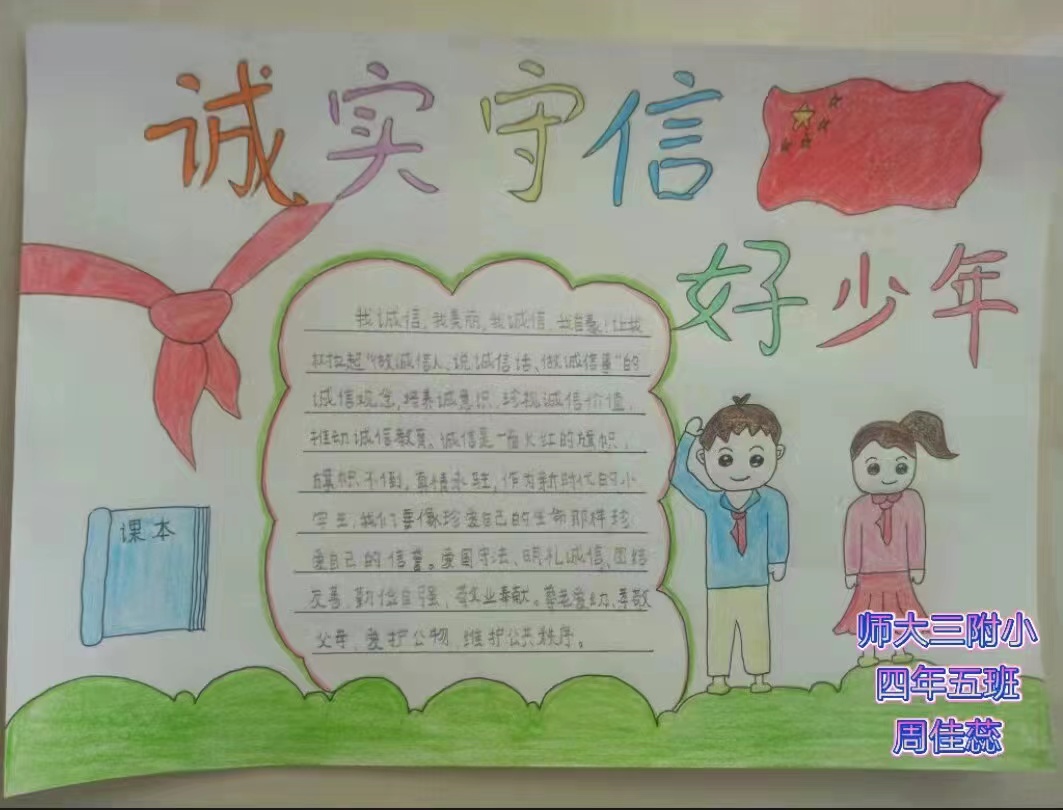 诚实守信
好少年
我诚信,我美丽,我诚信,我自豪!让我
扛起“做诚信人、说诚信话、做诚信事”的
诚信观念,培养诚意识,珍视诚信价值,
推动诚信教育、诚信是一面火红的旗帜,
旗帜不倒,真情永驻,作为新时代的小
学生,我们要像珍爱自己的生命那样珍
爱自己的信誉。爱国守法、明礼诚信、团结
友善、勤俭自强、敬业奉献。尊老爱幼、孝敬
父母、爱护公物、维护公共秩序。
课本
师大三附小
四年五班
周佳蕊